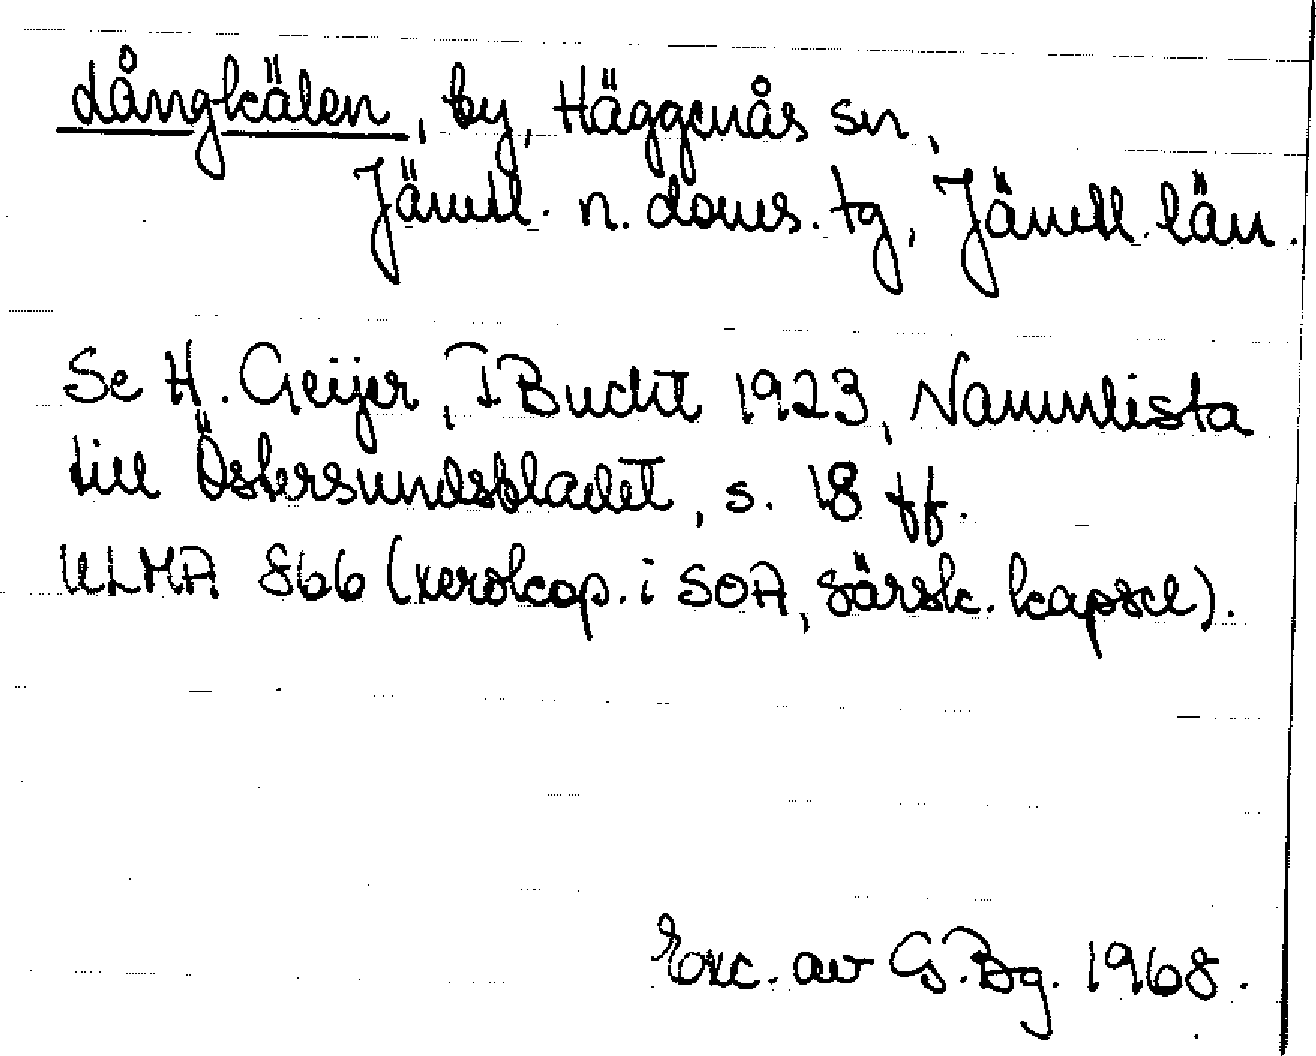 Långkälen, by, Häggenås sn,
Jämtl. n. doms. tg, Jämtl. län.
Se H. Geijer, T Bucht 1923, Namnlista
till Östersundsbladet, s. 18 ff.
ULMA 866 (xerokop. i SOA, särsk. kapsel).
Exc. av G. Bg. 1968.